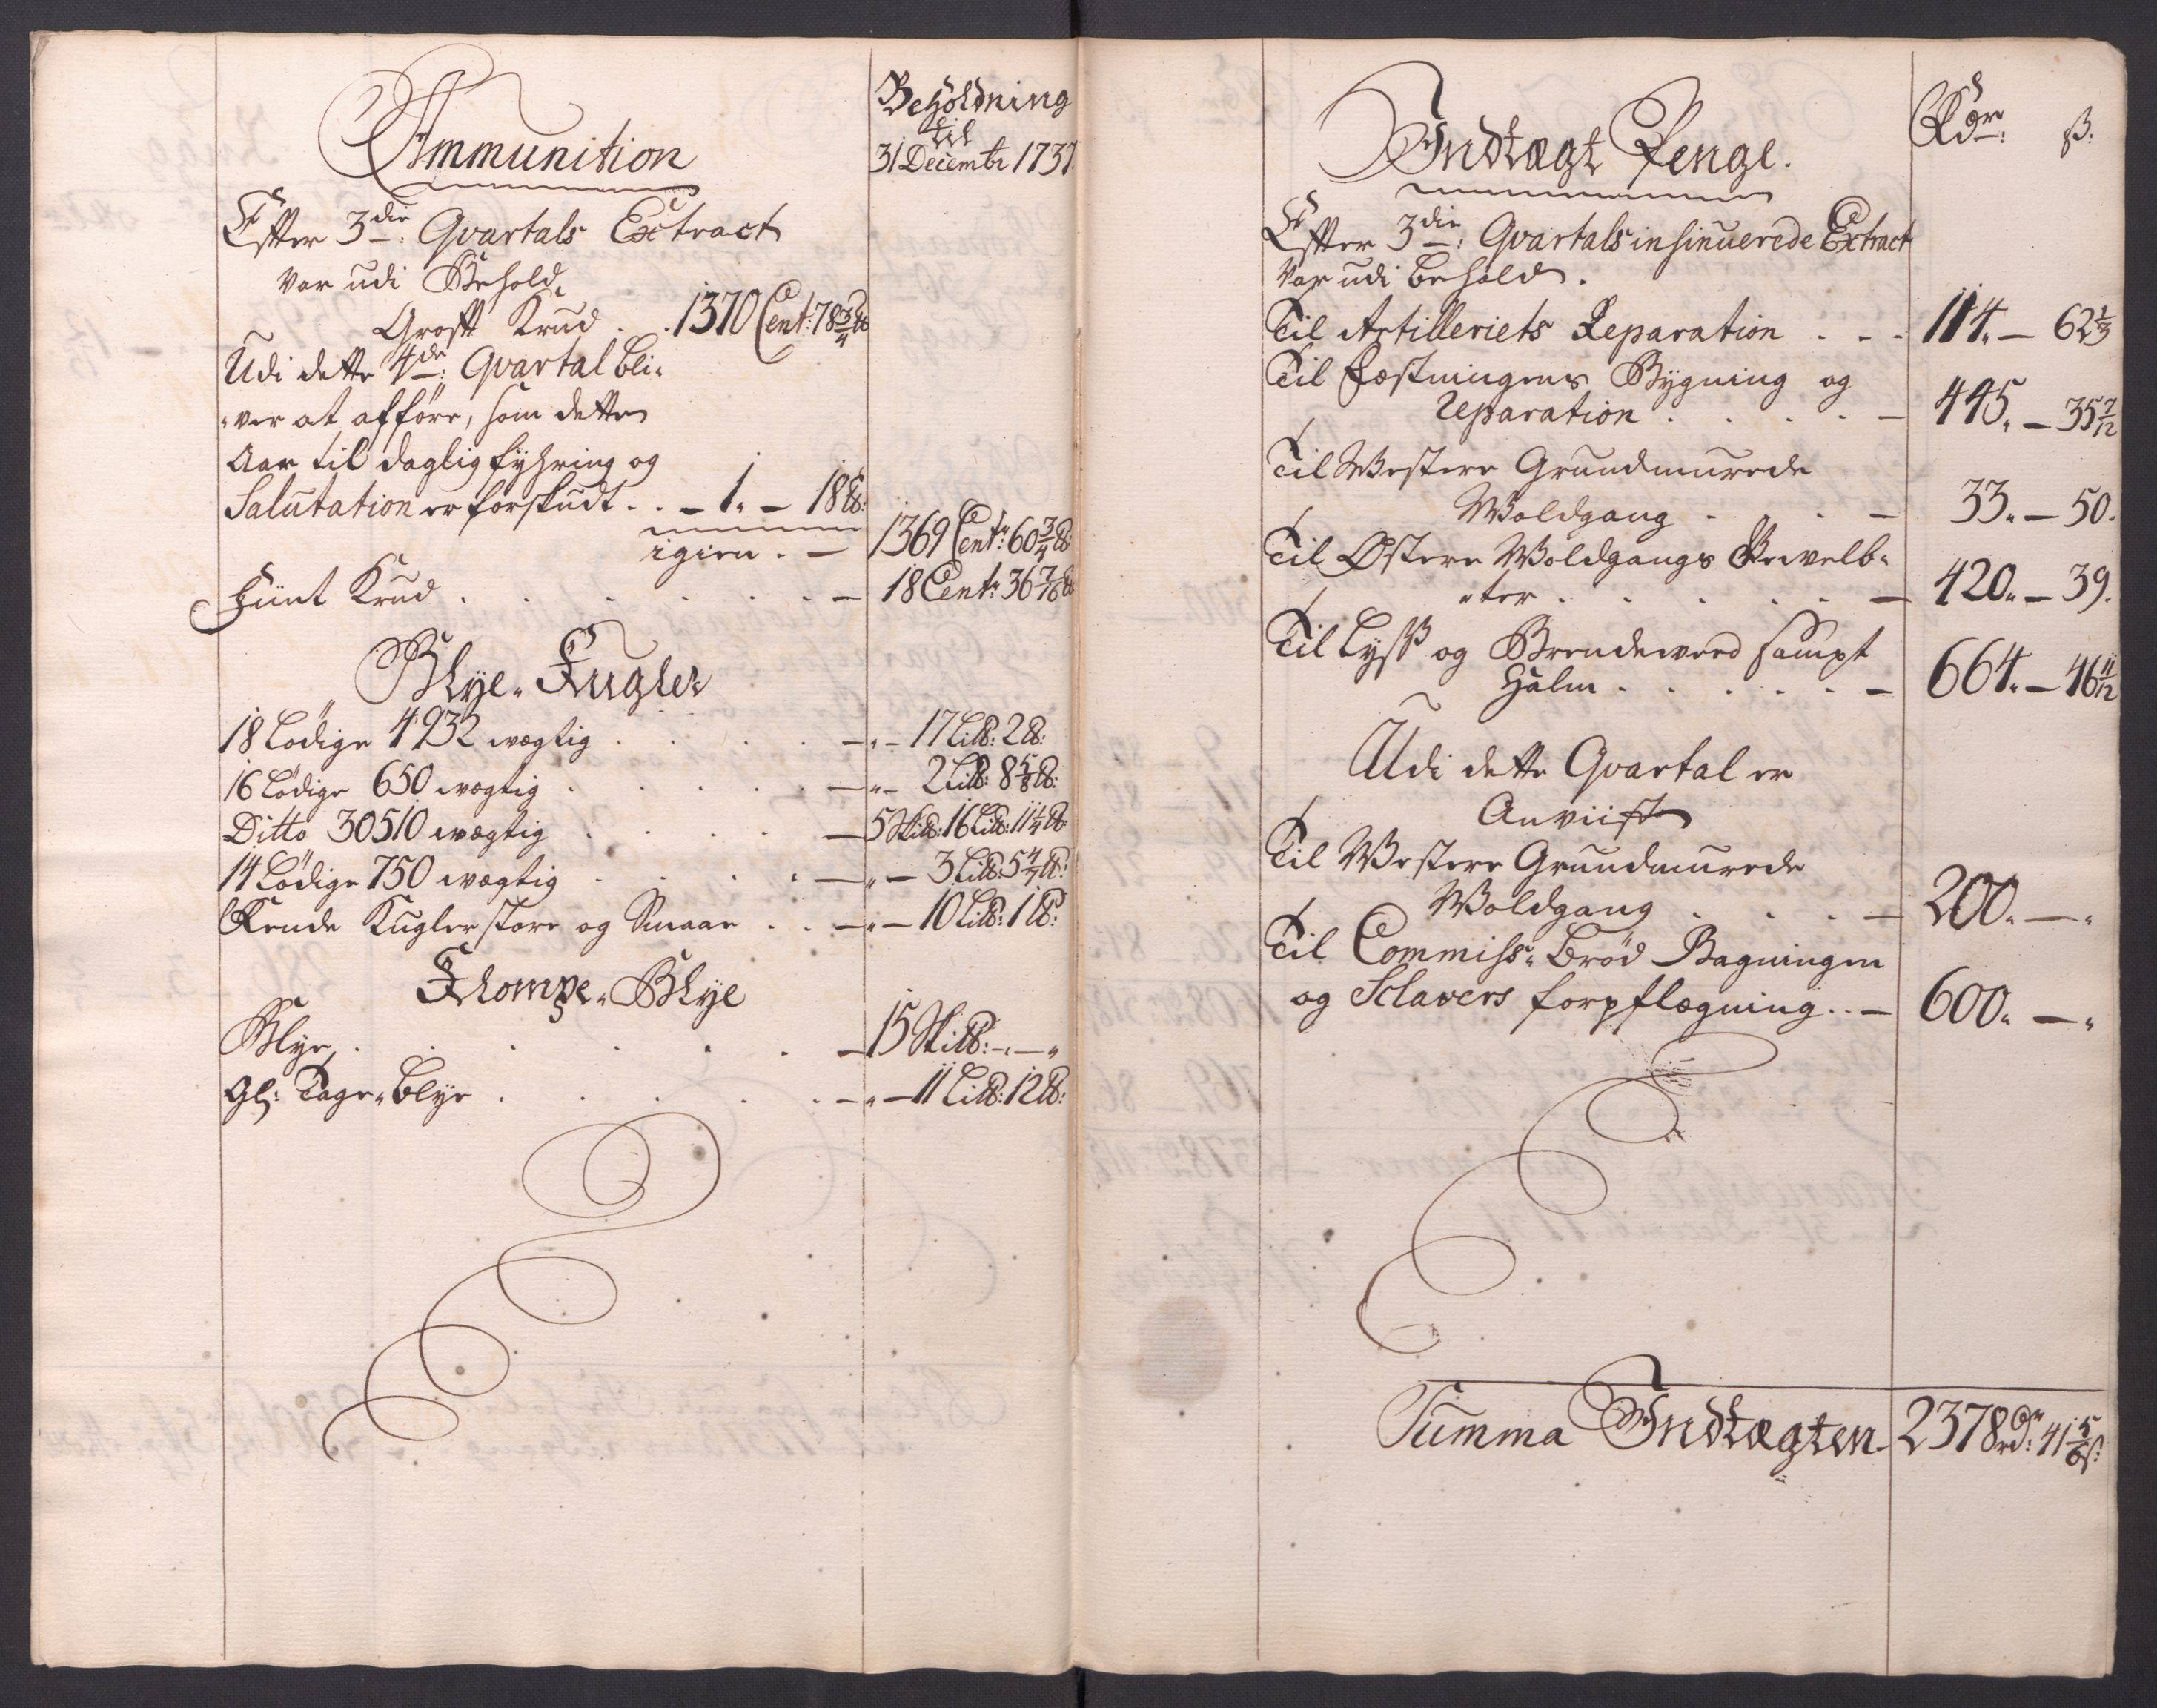 Ammunition
Beholdning
til
31 Decembr 1737
Efter 3die: Qvartals Extract
var udi Behold,
Groft Krud . . 1370 Cent: 78 3/4 ℔
Udi dette 4de: Qvartal bli-
-ver at afföre, som dette
Aar til daglig fyhring og
Salutation er forskudt . . – 1. – 18 ℔:
igien . – 1369 Centr: 60 3/4 ℔
Fiint Krud . . . . . . . – 18 Centr: 36 7/8 ℔
Blye-Kugler
18 Lödige 4932 vægtig . . . . – „ – 17 Lil℔: 2 ℔:
16 Lödige 650 vægtig . . . . – „ – 2 Lil℔: 8 5/8 ℔:
Ditto 30510 vægtig . . . . – 5 Skil℔: 16 Lil℔: 11 1/4 ℔
14 Lödige 750 vægtig . . . . – „ – 3 Lil℔: 5 4/7 ℔:
Rende Kugler store og Smaae . . – „ – 10 Lil℔: 1 ℔:
Klompe-Blye
Blye, . . . . . – 15 Skil℔: – „ – „
Gl: Tage-blye . . . . . – „ – 11 Lil℔: 12 ℔:
Indtægt Penge.
Rdr: ß:
Efter 3die: Qvartals insinuerede Extract
Var udi behold.
Til Artilleriets Reparation . . . 114. – 62 1/3
Til Fæstningens Bygning og
reparation . . . . – 445. – 35 7/12
Til Westere Grundmurede
Woldgang . . . – 33. – 50.
Til Østere Woldgangs Gewelb-
-ter . . . . . – 420. – 39.
Til Lyss og Brendeved sampt
Halm . . . . . – 664. – 46 11/12
Udi dette Qvartal er
Anviist
Til Westere Grundmurede
Woldgang . . . . – 200. – „
Til Commiss- bröd Bagningen
og Sclavers forpflægning . . – 600. – „
Summa Indtægten 2378 rdr: 41 5/6 ß: